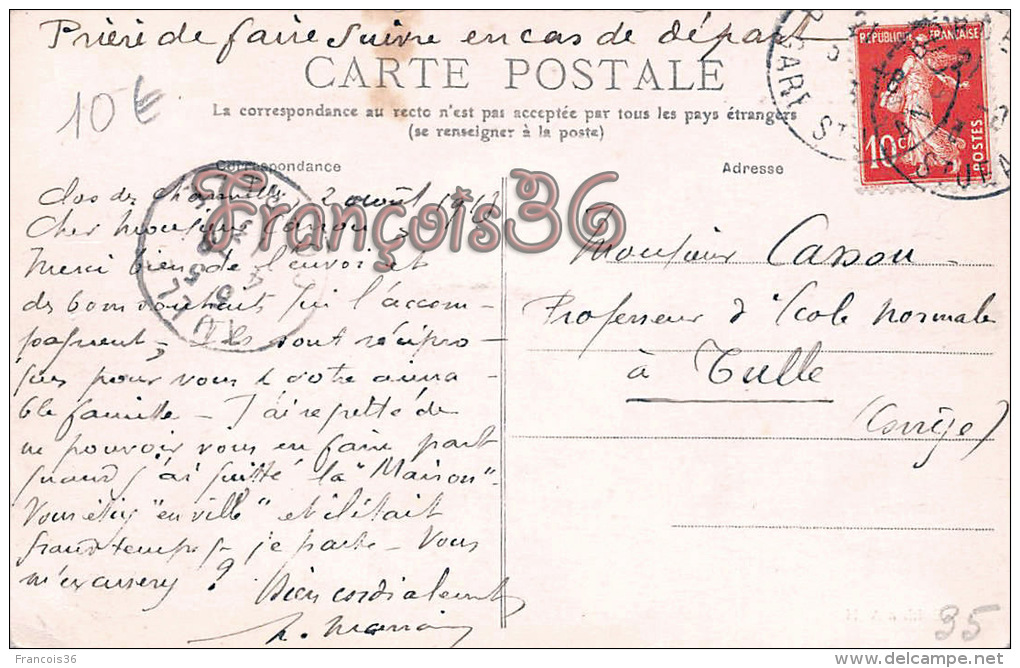 Prière de faire suivre en cas de départ
CARTE POSTALE
La correspondance au recto n'est pas acceptée par tous les pays étrangers
(se renseigner à la poste)
10€
REPUBLIQUE FRANÇAISE
10 c
POSTES
GARE ST
Correspondance
Adresse
2 août
Cher Monsieur
François36
Merci bien de l'envoi et
des bons souhaits qui l'accom-
pagnent, Ils sont récipro-
ques pour vous & votre aima-
ble famille - J'ai regretté de
ne pouvoir vous en faire part
quand j'ai quitté la "Maison".
Vous étiez "en ville" et il était
grand temps que je parte - Vous
m'excuserez ?
Bien cordialement
Monsieur Casson
Professeur d'Ecole normale
à Tulle
(Corrèze)
35
François36
delcampe.net